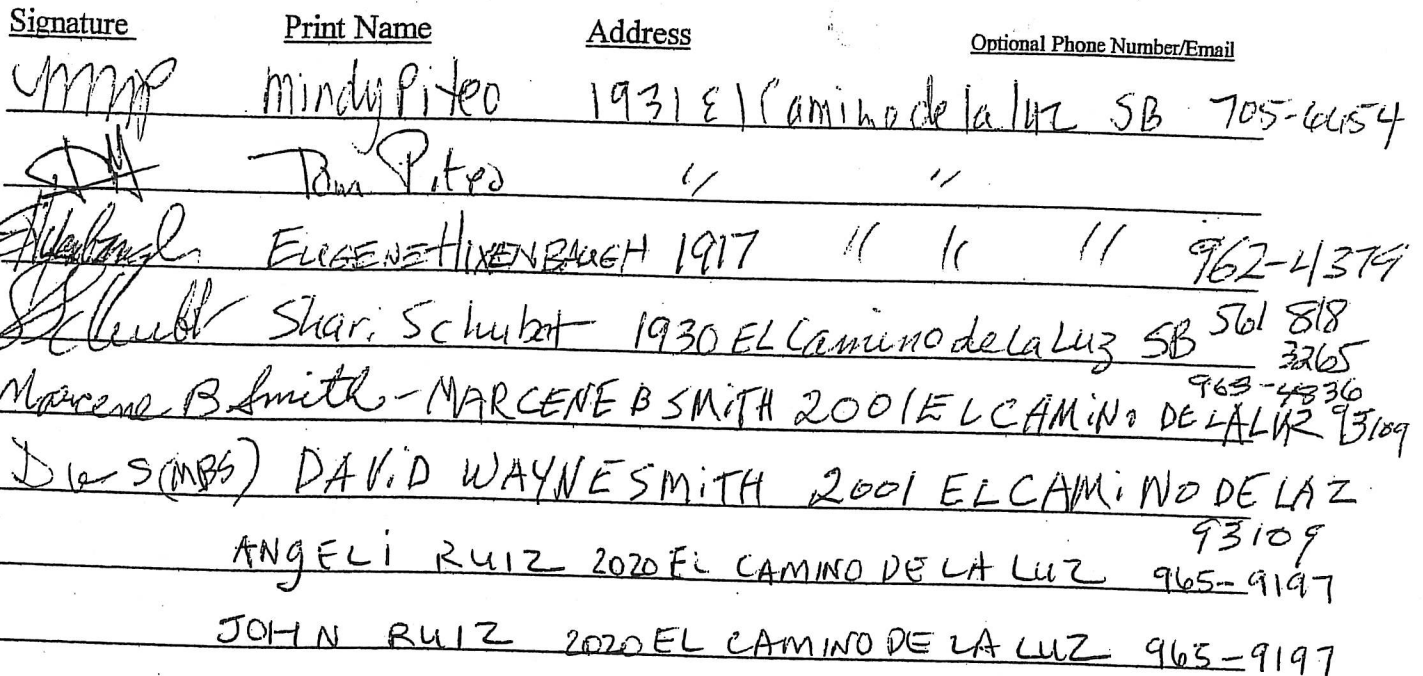 Signature Print Name Address Optional Phone Number/Email
Mindy Piteo 1931 El Camino de la luz SB 705-6654
Tom Piteo " "
EUGENE HIXENBAUGH 1917 " " " 962-4379
Shari Schubot 1930 EL Camino de La Luz SB 561 818 3265
Marcene B Smith - MARCENE B SMITH 2001 EL CAMINO DE LA LUZ 93109
DAVID WAYNE SMITH 2001 EL CAMINO DE LA Z
93109
ANGELI RUIZ 2020 EL CAMINO DE LA LUZ 965-9197
JOHN RUIZ 2020 EL CAMINO DE LA LUZ 965-9197